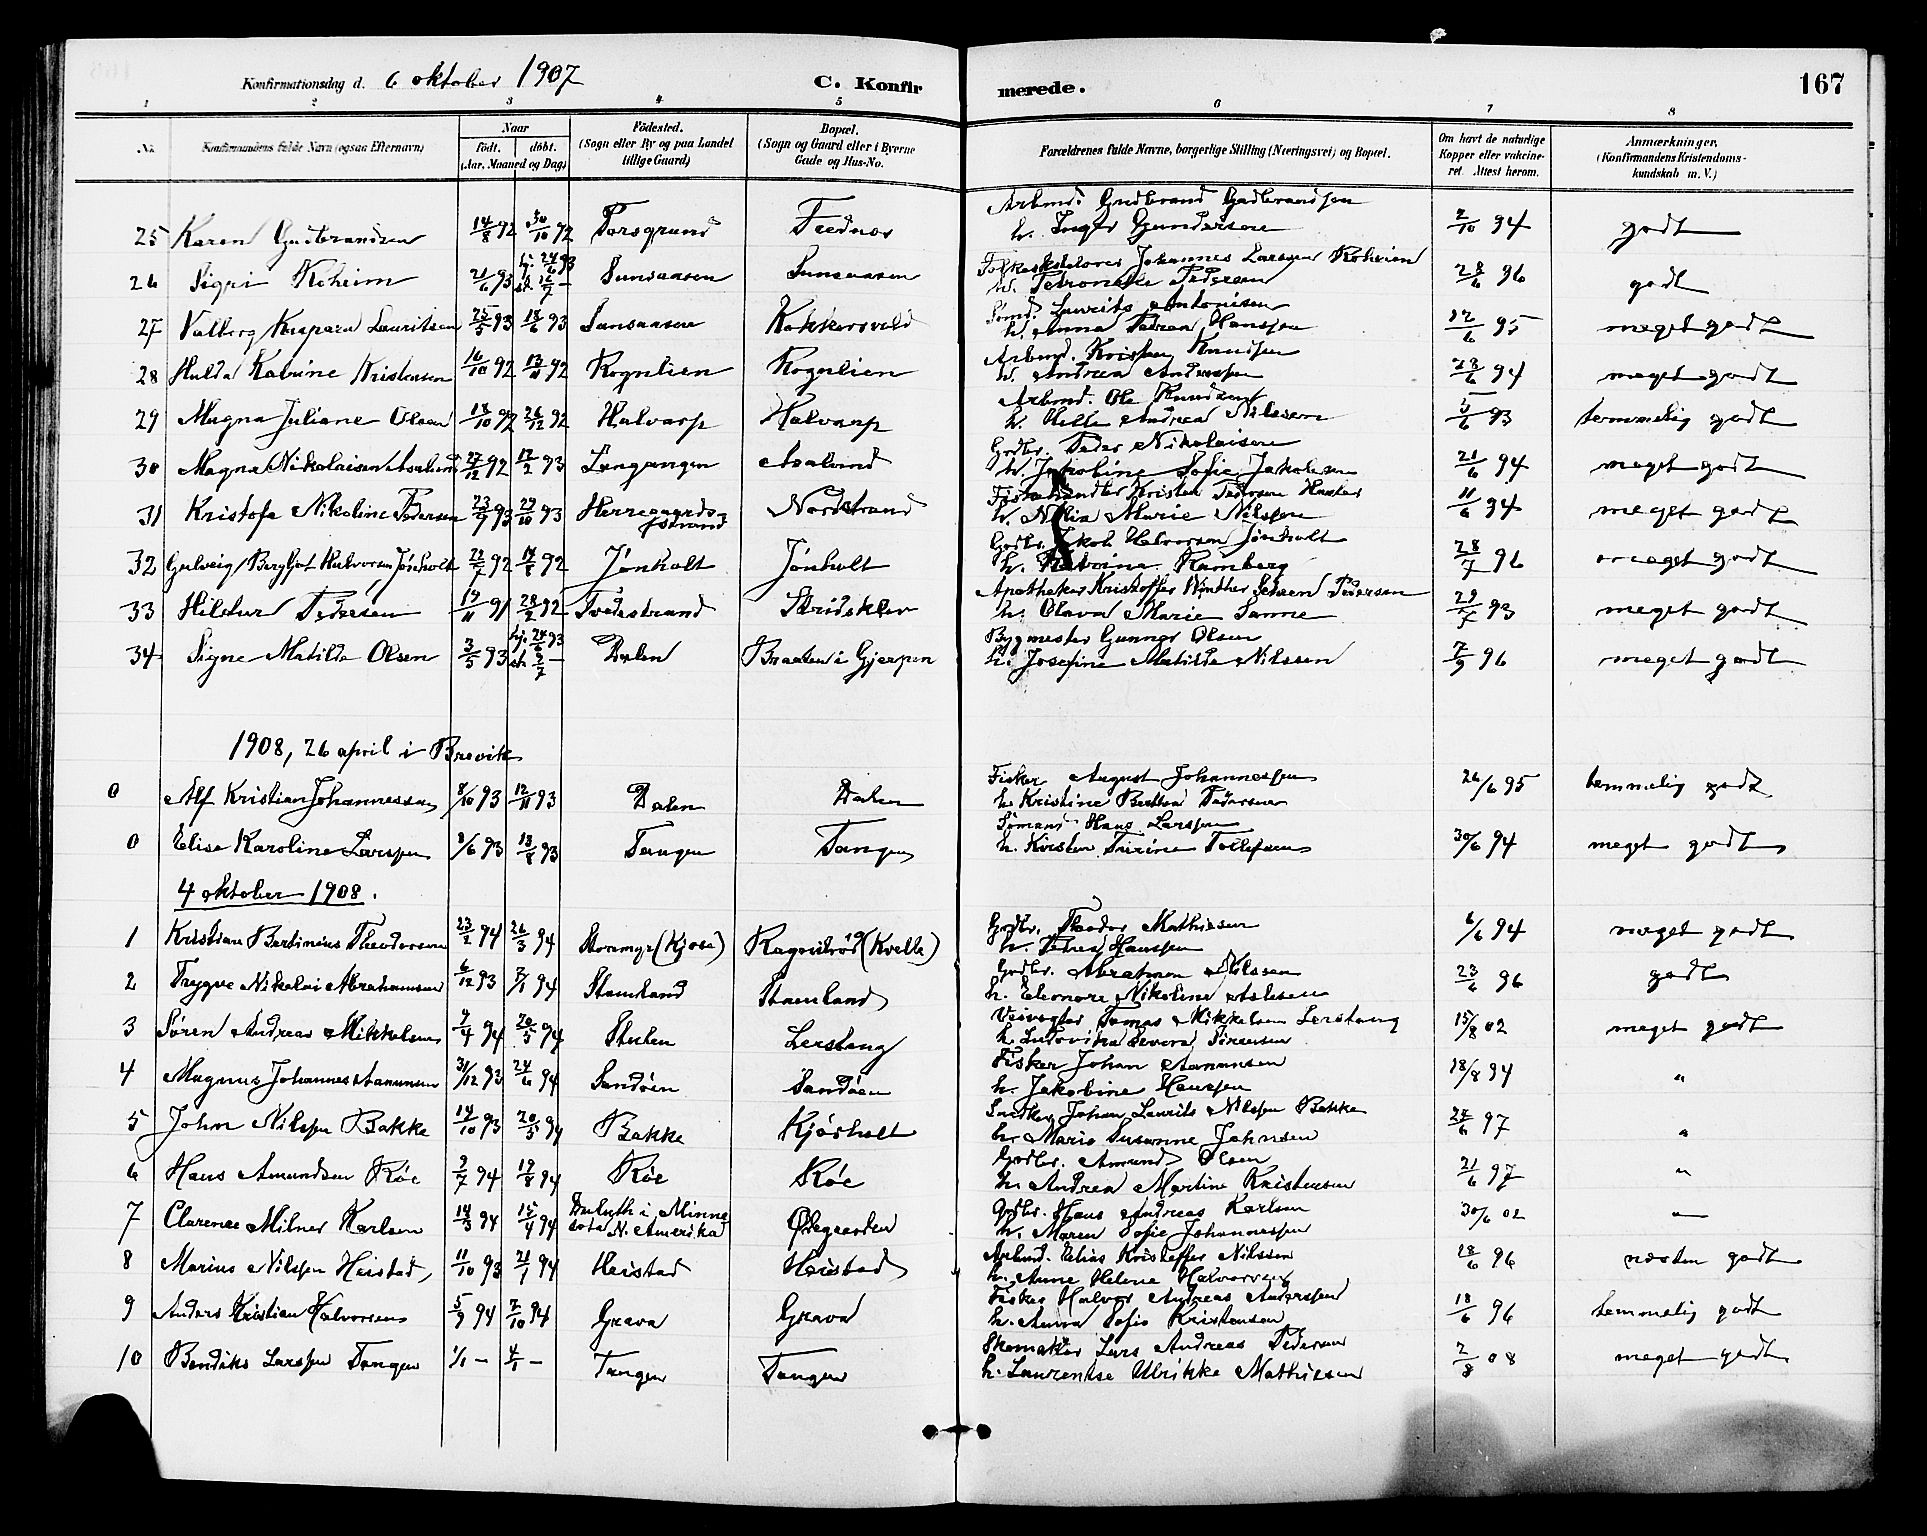 Konfirmationsdag d. 6 oktober 1907 C. Konfir merede. 167
1 2 3 4 5 6 7 8
No. Konfirmandens fulde Navn (ogsaa Efternavn) Naar født. døbt. (Aar, Maaned og Dag) Fødested. (Sogn eller By og paa Landet tillige Gaard) Bopæl. (Sogn og Gaard eller i Byerne Gade og Hus-No. Forældrenes fulde Navne, borgerlige Stilling (Næringsvei) og Bopæl. Om havt de naturlige Kopper eller vakcineret. Attest herom. Anmærkninger. (Konfirmandens Kristendomskundskab m. V.)
25 Karen Gudbrandsen 14/8 92 30/10 92 Porsgrund Frednes Arbmd. Gudbrand Gudbrandsen
h. Inger Gundersen 2/10 94 godt
26 Sigri Roheim 21/6 93 hj. 24/6 93 st. 16/7 — Sundsaasen Sundsaasen Folkeskolelærer Johannes Larsen Roheim
h. Petronelle Pedersen 28/6 96 godt
27 Valborg Kaspara Lauritsen 25/5 93 18/6 93 Sundsaasen Kokkersvold Sømd. Laurits Antonisen
h. Anna Petrea Hanssen 12/6 95 meget godt
28 Hulda Katrine Kristensen 16/10 92 13/11 92 Rognlien Rognlien Arbmd. Kristen Knudsen
h. Andrea Anderssen 28/6 94 meget godt
29 Magna Juliane Olsen 18/10 92 26/12 92 Halvarp Halvarp Arbmd. Ole Knudsen
h. Helle Andrea Nilssen 5/6 93 temmelig godt
30 Magna Nikolaisen Aaslund 27/12 92 12/2 93 Langangen Aaslund Gdbr. Peder Nikolaisen
h. Jakobine Sofie Jakobsen 21/6 94 meget godt
31 Kristofa Nikoline Pedersen 23/9 93 29/10 93 Herregaardsstrand Nordstrand Fiskehandler Kristen Pedersen
h. Marie Nilssen 11/6 94 meget godt
32 Gulveig Bergljot Halvorsen Jønholt 22/7 92 14/8 92 Jønholt Jønholt Gdbr. Jakob Halvorsen Jønholt
h. Katrine Ramberg 28/7 96 meget godt
33 Hildur Pedersen 19/11 91 28/2 92 Tvedestrand Stridsklev Apotheker Kristoffer Winther Pedersen
h. Olava Marie Sanne 29/7 93 meget godt
34 Signe Matilde Olsen 3/5 93 hj. 24/6 93 st. 9/7 — Dalen Braaten i Gjerpen Bygmester Gunnar Olsen
h. Josefine Matilde Nilssen 7/9 96 meget godt
1908, 26 april i Brevik
0 Alf Kristian Johannessen 8/10 93 12/11 93 Dalen Dalen Fisker August Johannessen
h. Kristine Bertea Pedersen 26/6 95 temmelig godt
0 Elise Karoline Larssen 2/6 93 13/8 93 Tangen Tangen Sømand Hans Larssen
h. Kirsten Turine Tollefsen 30/6 94 meget godt
4 oktober 1908.
1 Kristian Bertinius Theodorsen 23/2 94 26/3 94 Stormyr (Kjose) Ragnilrød (Kvelle) Gdbr. Theodor Mathiesen
h. Petrea Hanssen 6/6 94 meget godt
2 Trygve Nikolai Abrahamsen 6/12 93 7/1 94 Stamland Stamland Gdbr. Abraham Nilssen
h. Eleonore Nikoline Aslesen 23/6 96 godt
3 Søren Andreas Mikkelsen 9/4 94 20/5 94 Stulen Lerstang Veivogter Tomas Mikkelsen Lerstang
h. Lutovika Severa Sørensen 15/8 02 meget godt
4 Magnus Johannes Aamunsen 31/12 93 24/6 94 Sandøen Sandøen Fisker Johan Aamunsen
h. Jakobine Hanssen 18/8 94 "
5 John Nilssen Bakke 14/10 93 20/5 94 Bakke Kjørholt Snedker Johan Laurits Nilssen Bakke
h. Marie Susanne Johnsen 24/6 97 "
6 Hans Amundsen Røe 9/7 94 19/8 94 Røe Røe Gdbr. Amund Olsen
h. Andrea Martine Kristensen 21/6 97 "
7 Clarence Milner Karlsen 14/3 94 15/4 94 Duluth i Minnesota N. Amerika Ødegaarden Gdbr. Hans Andreas Karlsen
h. Maren Sofie Johannessen 30/6 02 "
8 Marius Nilssen Heistad 11/10 93 21/1 94 Heistad Heistad Arbmd. Elias Kristoffer Nilssen
h. Anne Helene Halvorsen 28/6 96 næsten godt
9 Anders Kristian Halvorsen 5/9 94 7/10 94 Grava Grava Fisker Halvor Andreas Anderssen
h. Anna Sofie Kristensen 18/6 96 temmelig godt
10 Bendiks Larssen Tangen 1/1 — 4/1 — Tangen Tangen Skomaker Lars Andreas Pedersen
h. Laurentse Ulrikke Mathiesen 2/8 08 meget godt